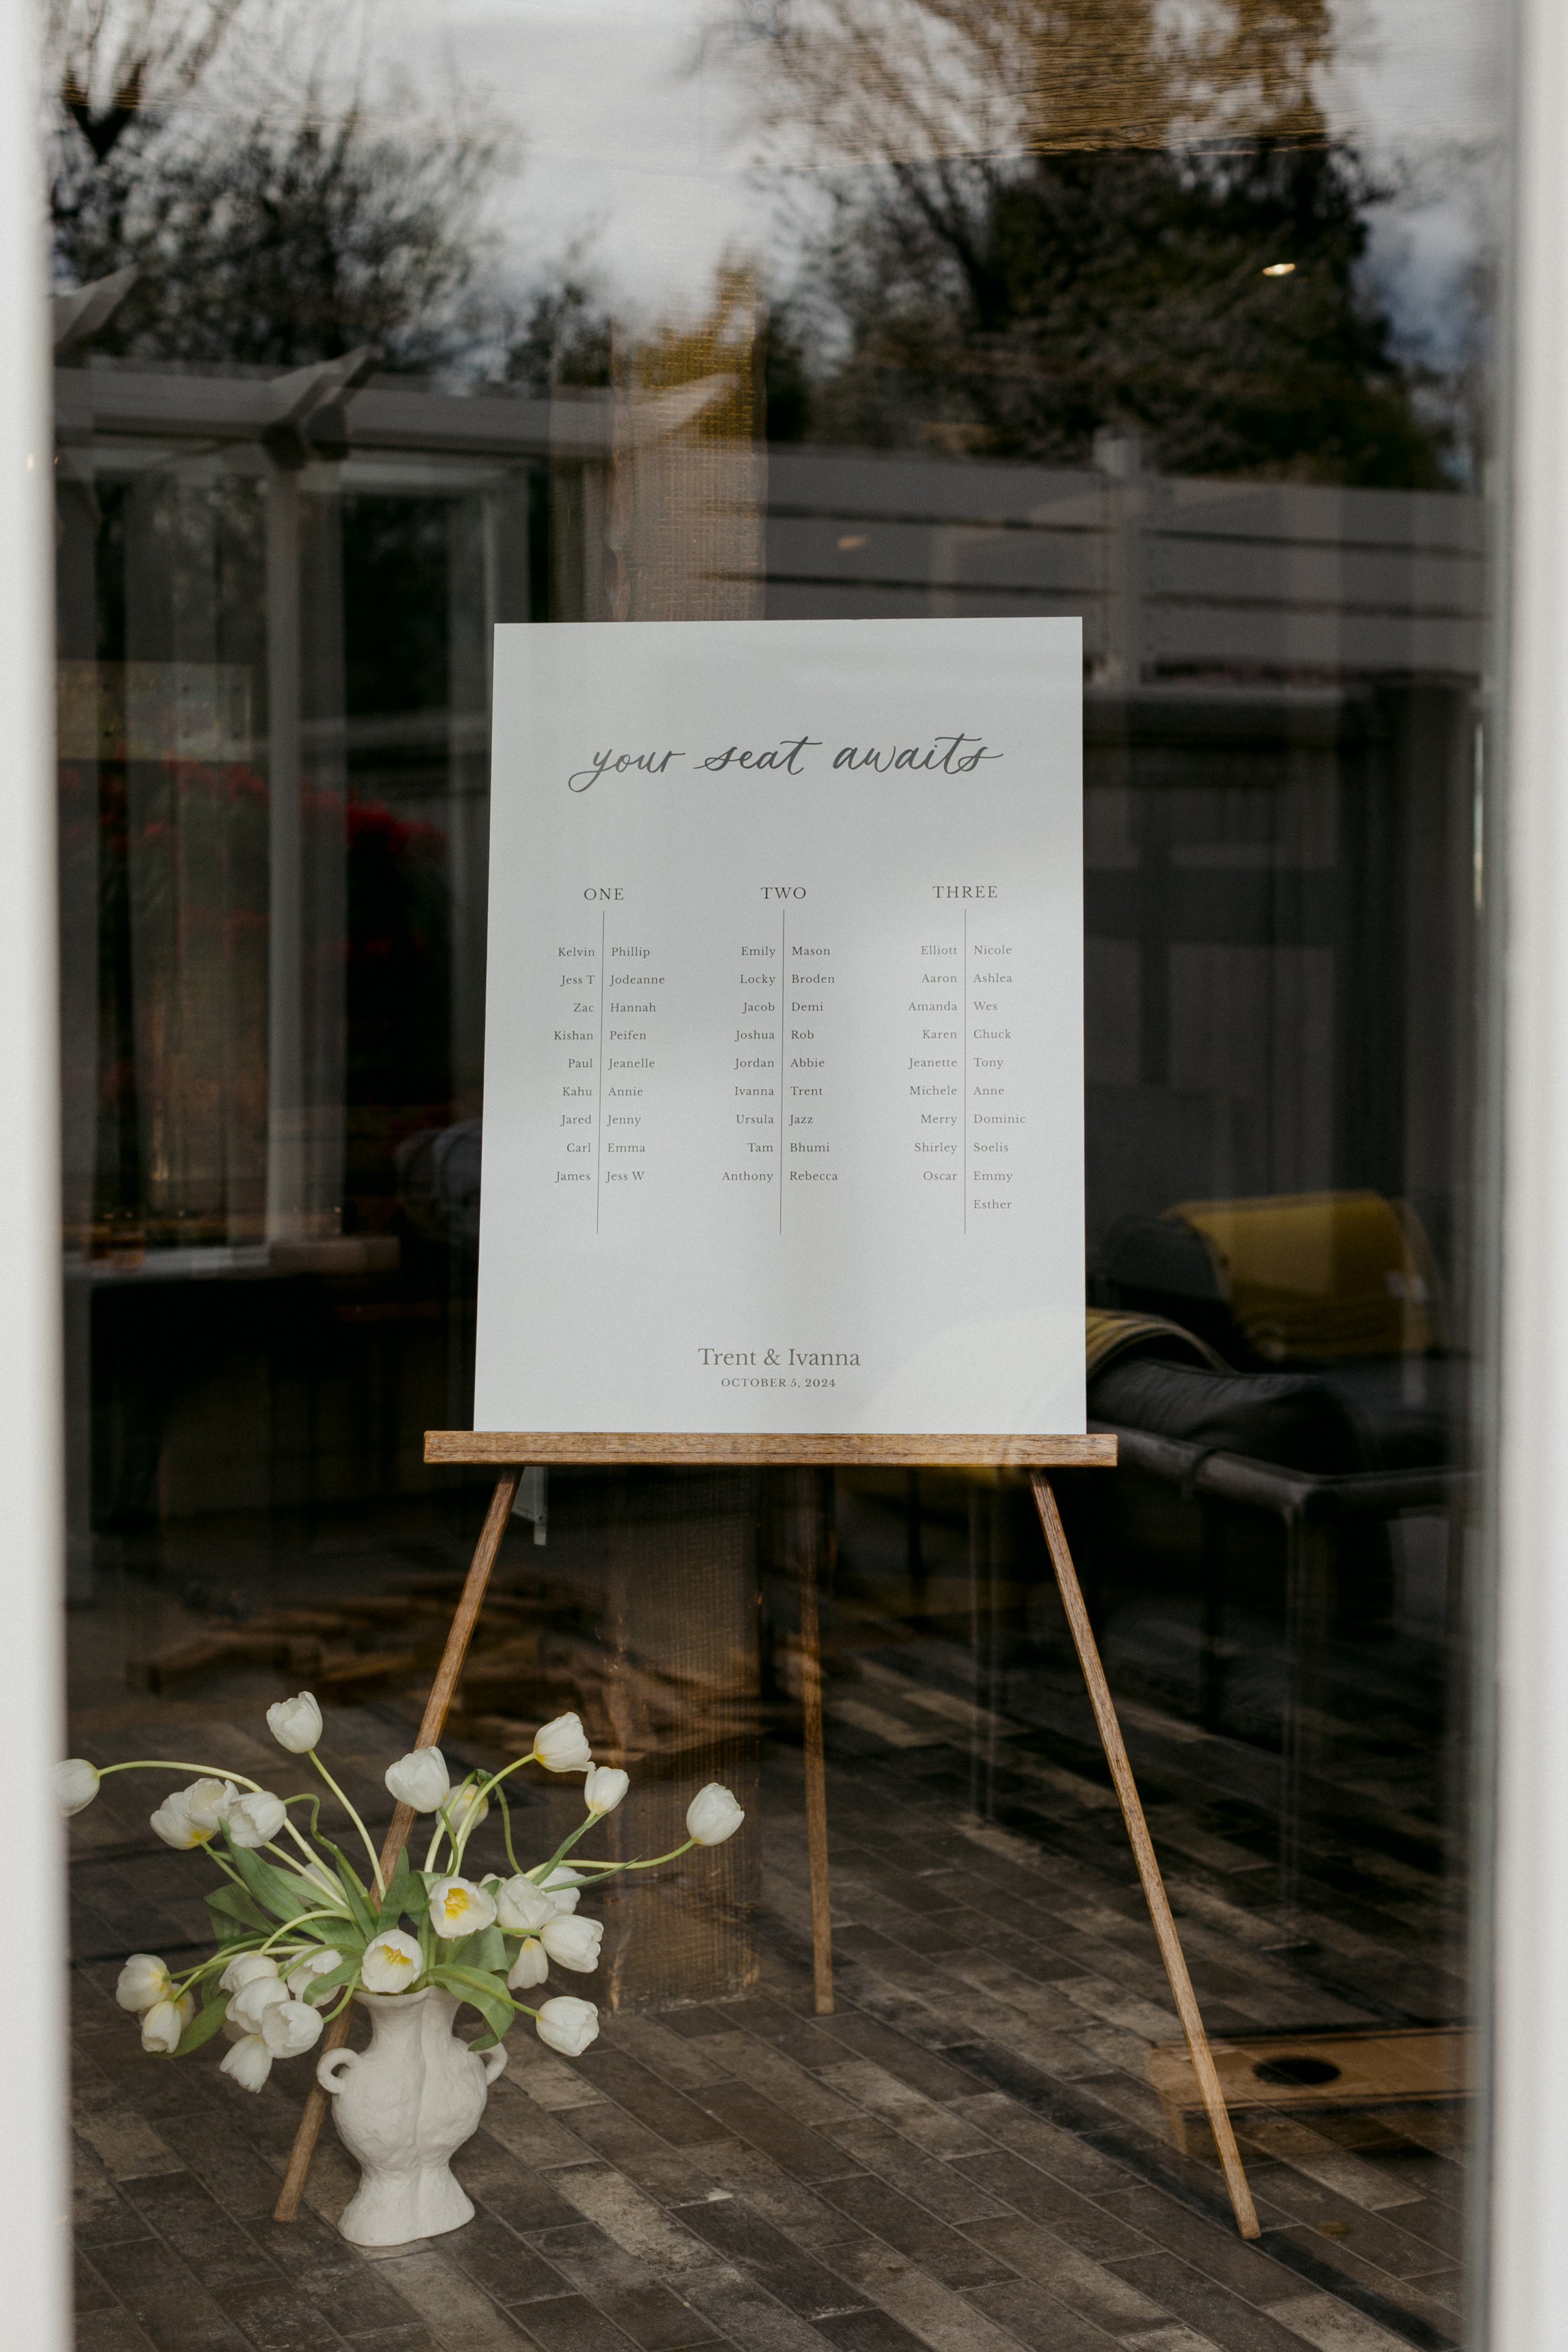 your seat awaits
ONE TWO THREE
Kelvin Phillip Emily Mason Elliott Nicole
Jess T Jodeanne Locky Broden Aaron Ashlea
Zac Hannah Jacob Demi Amanda Wes
Kishan Peifen Joshua Rob Karen Chuck
Paul Jeanelle Jordan Abbie Jeanette Tony
Kahu Annie Ivanna Trent Michele Anne
Jared Jenny Ursula Jazz Merry Dominic
Carl Emma Tam Bhumi Shirley Soelis
James Jess W Anthony Rebecca Oscar Emmy
Esther
Trent & Ivanna
OCTOBER 5, 2024